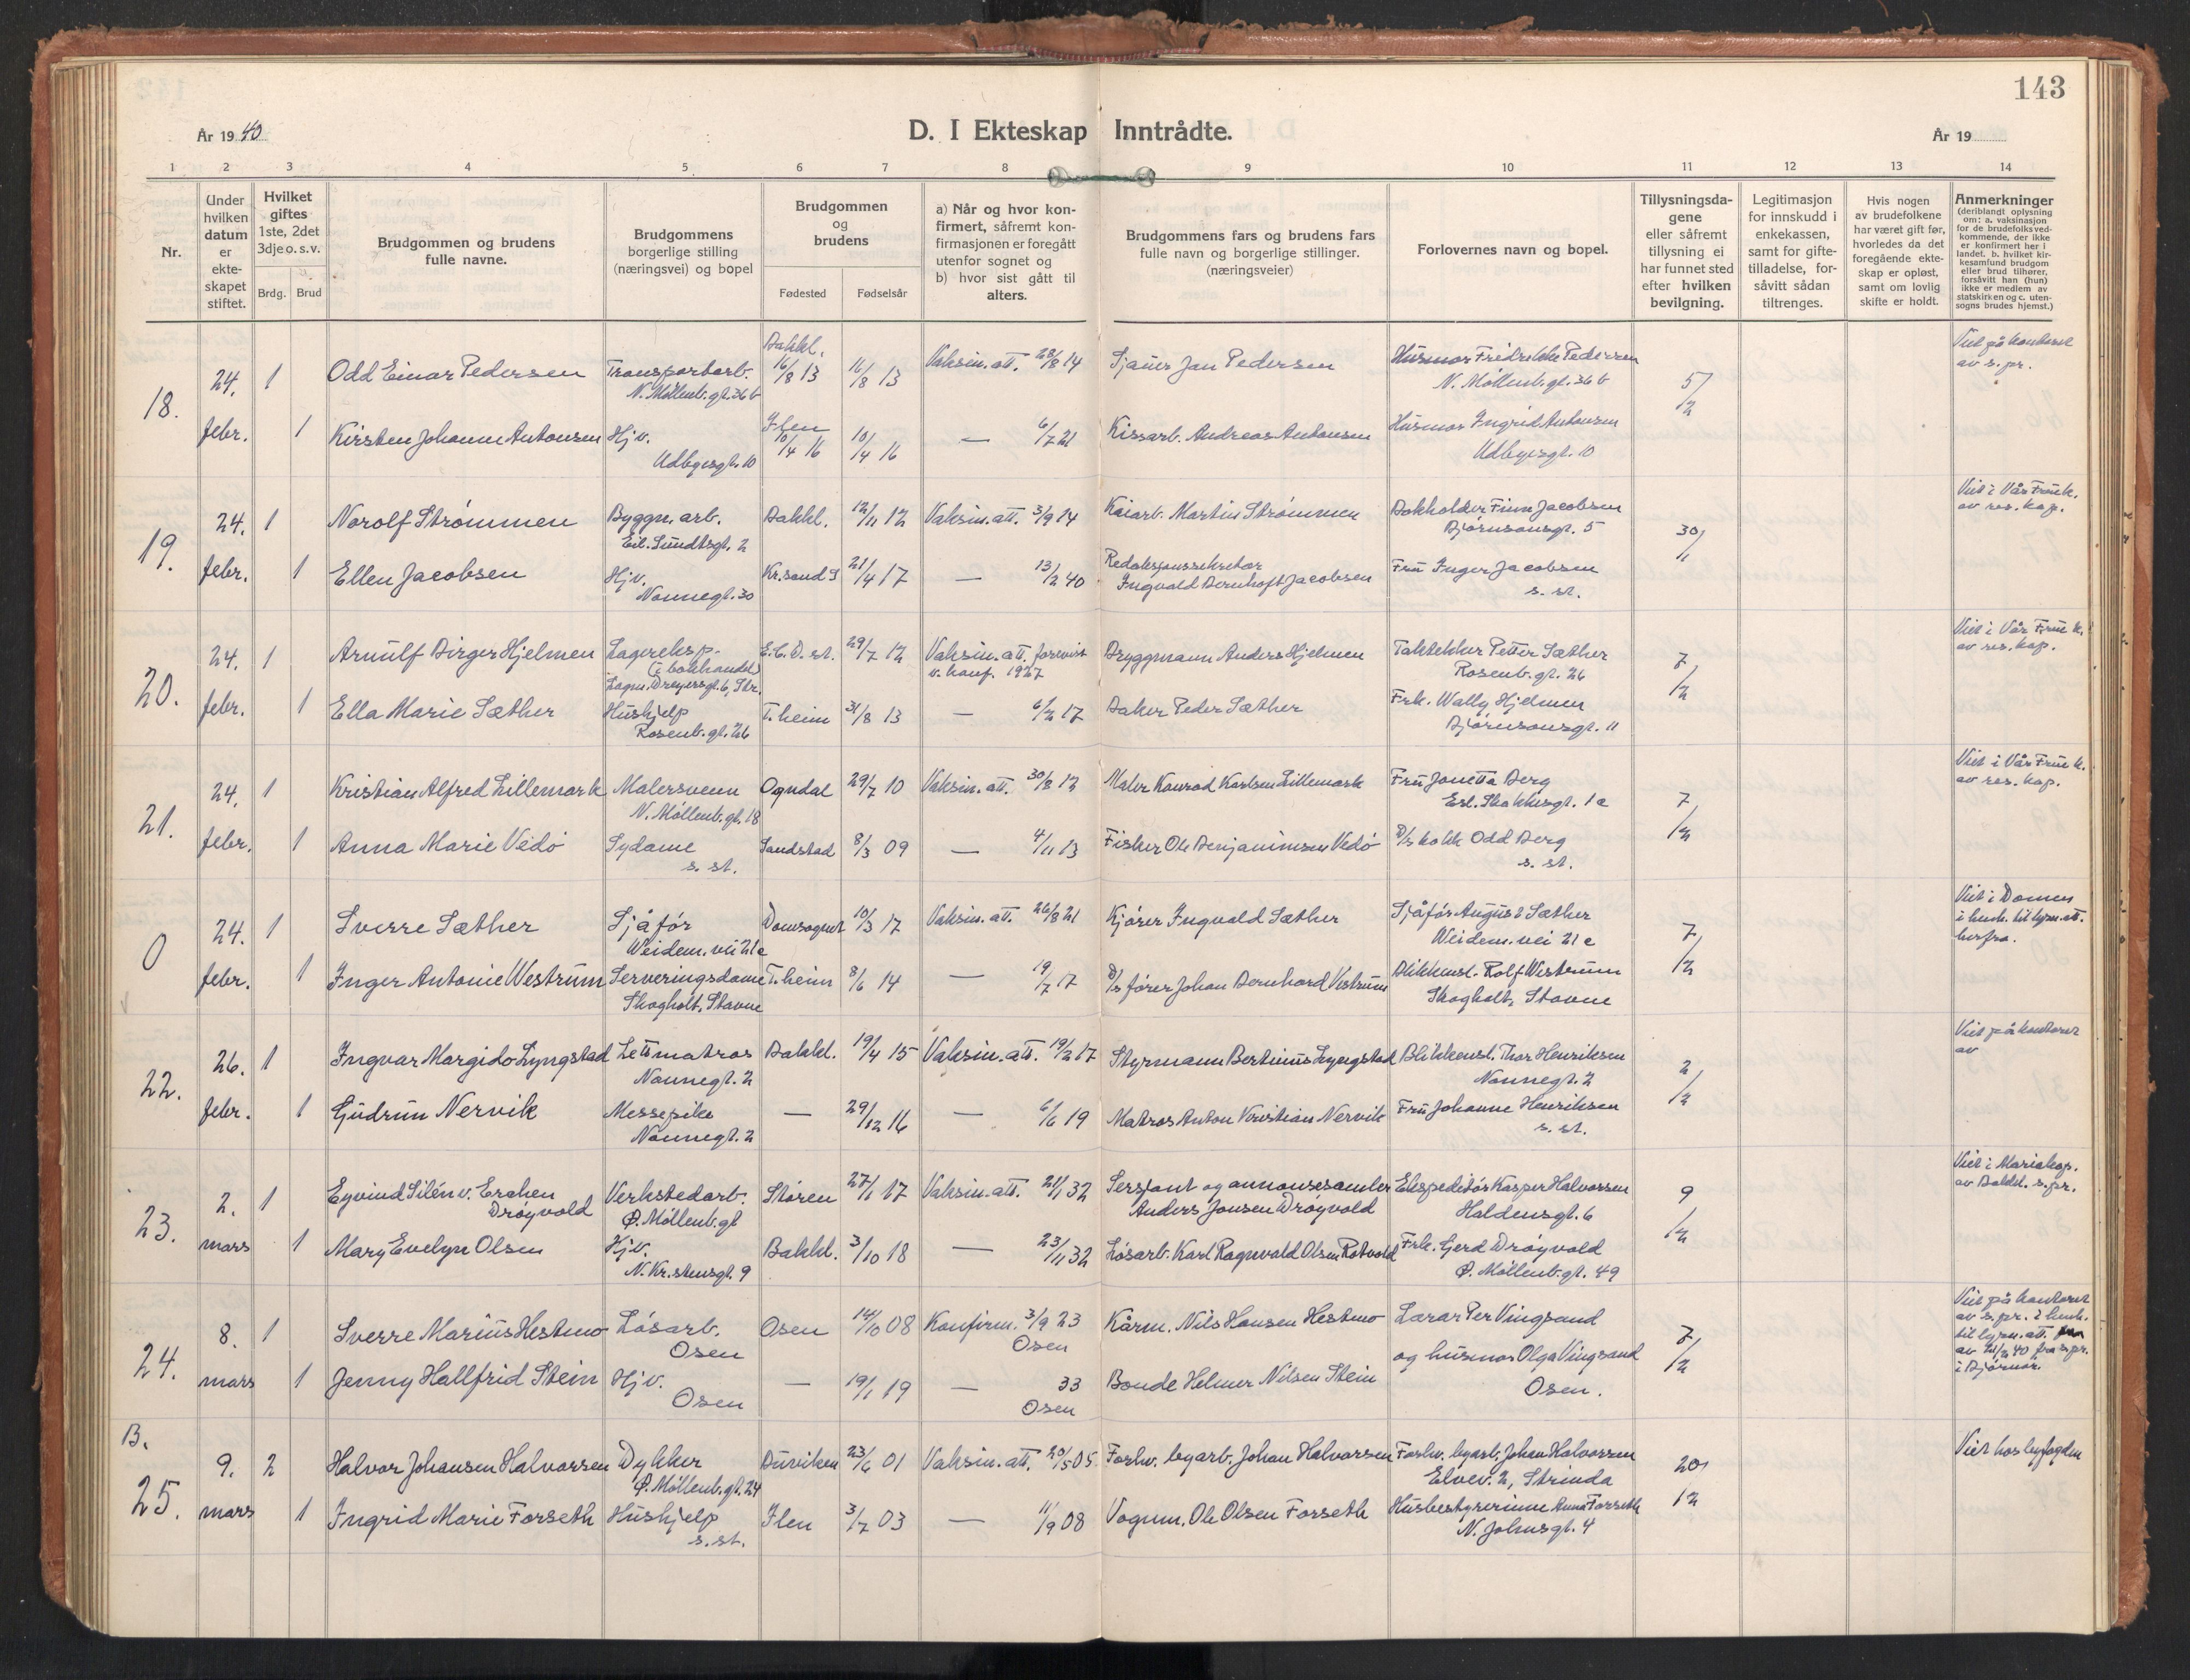 143
År 1940
D. I Ekteskap Inntrådte.
År 19
1 2 3 4 5 6 7 8 9 10 11 12 13 14
Nr.
Under hvilken datum er ekteskapet stiftet.
Hvilket giftes 1ste, 2det 3dje o. s. v.
Brdg. Brud
Brudgommen og brudens fulle navne.
Brudgommens borgerlige stilling (næringsvei) og bopel
Brudgommen og brudens
Fødested Fødselsår
a) Når og hvor konfirmert, såfremt konfirmasjonen er foregått utenfor sognet og
b) hvor sist gått til alters.
Brudgommens fars og brudens fars fulle navn og borgerlige stillinger. (næringsveier)
Forlovernes navn og bopel.
Tillysningsdagene eller såfremt tillysning ei har funnet sted efter hvilken bevilgning.
Legitimasjon for innskudd i enkekassen, samt for giftetilladelse, forsåvitt sådan tiltrenges.
Hvis nogen av brudefolkene har været gift før, hvorledes da det foregående ekteskap er opløst, samt om lovlig skifte er holdt.
Anmerkninger (deriblandt oplysning om: a. vaksinasjon for de brudefolks vedkommende, der ikke er konfirmert her i landet. b. hvilket kirkesamfund brudgom eller brud tilhører, forsåvitt han (hun) ikke er medlem av statskirken og c. utensogns brudes hjemst.)
18. 24. febr.
1 Odd Einar Pedersen Transportarb. N. Møllenb. gt. 36b Bakkl. 16/8 13 16/8 13 Vaksin. att. 28/8 14 Sjauer Jan Pedersen Husmor Fredrikke Pedersen N. Møllenb. gt. 36b 5/2 Viet på kontoret av s. pr.
1 Kirsten Johanne Antonsen Hjv. Udbyesgt. 10 Ilen 10/4 16 10/4 16 — 6/7 21 Kissarb. Andreas Antonsen Husmor Ingrid Antonsen Udbyesgt. 10
19. 24. febr.
1 Norolf Strømmen Byggn. arb. Eil. Sundtsgt. 2 Bakkl. 12/11 12 Vaksin. att. 3/9 14 Kaiarb. Martin Strømmen Bokholder Finn Jacobsen Bjørnsonsgt. 5 30/1 Viet i Vår Frue k. av res. kap.
1 Ellen Jacobsen Hjv. Nonnegt. 30 Kr.sand S 21/4 17 — 13/2 40 Redaksjonssekretær Ingvald Bernhoft Jacobsen Fru Inger Jacobsen s. st.
20. 24. febr.
1 Arnulf Birger Hjelmen Lagereksp. (i bokhandel) Lagm. Dreyersgt. 6, Str. E. C. D. st. 29/7 12 Vaksin. att. forevist v. konf. 1927 Bryggmann Anders Hjelmen Taktekker Petter Sæther Rosenb. gt. 26 7/2 Viet i Vår Frue k. av res. kap.
1 Ella Marie Sæther Hushjelp Rosenb. gt. 26 T.heim 31/8 13 — 6/2 17 Baker Peder Sæther Frk. Wally Hjelmen Bjørnsonsgt. 11
21. 24. febr.
1 Kristian Alfred Lillemark Malersvenn N. Møllenb. gt. 18 Ogndal 29/7 10 Vaksin. att. 30/8 12 Maler Konrad Karlsen Lillemark Fru Jonetta Berg Erl. Skakkesgt. 1a 7/2 Viet i Vår Frue k. av res. kap.
1 Anna Marie Vedø Sydame s. st. Sandstad 8/3 09 — 4/11 13 Fisker Ole Benjaminsen Vedø D/s kokk Odd Berg s. st.
0 24. febr.
1 Sverre Sæther Sjåfør Weidem. vei 21c Domsognet 10/3 17 Vaksin. att. 26/8 21 Kjører Ingvald Sæther Sjåfør August Sæther Weidem. vei 21c 7/2 Viet i Domen i henh. til lysn. att. herfra.
1 Inger Antonie Westrum Serveringsdame Skogholt, Stavne T.heim 8/6 14 — 19/7 17 D/s fører Johan Bernhard Vestrum Blikkensl. Rolf Westrum Skogholt, Stavne
22. 26. febr.
1 Ingvar Margido Lyngstad Lettmatros Nonnegt. 2 Bakkl. 19/4 15 Vaksin. att. 19/2 17 Styrmann Bertinius Lyngstad Blikkensl. Thor Henriksen Nonnegt. 2 2/2 Viet på kontoret av
1 Gudrun Nervik Messepike Nonnegt. 2 — 29/12 16 — 6/6 19 Matros Anton Kristian Nervik Fru Johanne Henriksen s. st.
23. 2. mars
1 Eyvind Silén v. Erchen Drøyvold Verkstedarb. Ø. Møllenb. gt Støren 27/1 17 Vaksin. att. 21/1 32 Sersjant og annonsesamler Anders Jonsen Drøyvold Ekspeditør Kasper Halvorsen Haldensgt. 6 9/2 Viet i Mariakap. av Bakkl. s. pr.
1 Mary Evelyn Olsen Hjv. N. Kr.stensgt. 9 Bakkl. 3/10 18 — 23/11 32 Løsarb. Karl Ragnvald Olsen Rotvold Frk. Gerd Drøyvold Ø. Møllenb. gt. 49
24. 8. mars
1 Sverre Marius Hestmo Løsarb. Osen Osen 14/10 08 Konfirm. 3/9 23 Osen Kårm. Nils Hansen Hestmo Lærer Per Vingsand 7/2 Viet på kontoret av s. pr. i henh. til lysn. att. av 21/2 40 fra s. pr. i Bjørnør.
1 Jenny Hallfrid Stein Hjv. Osen — 19/1 19 — 33 Osen Bonde Helmer Nilsen Stein og husmor Olga Vingsand Osen.
B. 25. 9. mars
2 Halvor Johansen Halvorsen Dykker Ø. Møllenb. gt. 24 Buviken 23/6 01 Vaksin. att. 20/5 05. Forhv. byarb. Johan Halvorsen Forhv. byarb. Johan Halvorsen Elvev. 2, Strinda 20/12 Viet hos byfogden
1 Ingrid Marie Forseth Hushjelp s. st. Ilen 3/7 03 — 11/9 08 Vognm. Ole Olsen Forseth Husbestyrerinne Anna Forseth N. Johnsgt. 4